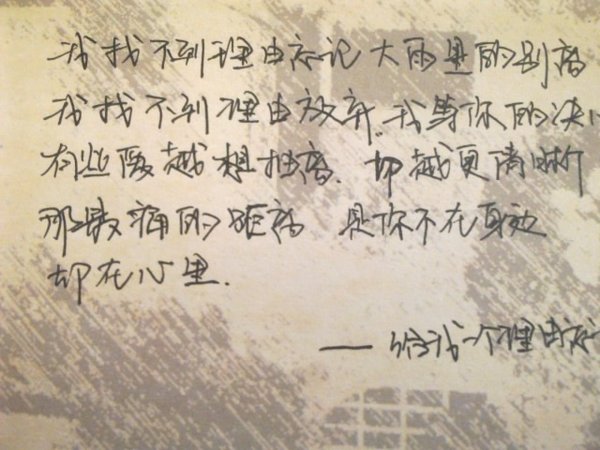 我找不到理由忘记 大雨里的别离
我找不到理由放弃。我等你的决
有些爱越想抽离、却越更清晰
那最痛的距离 是你不在身边
却在心里.
——给我一个理由忘